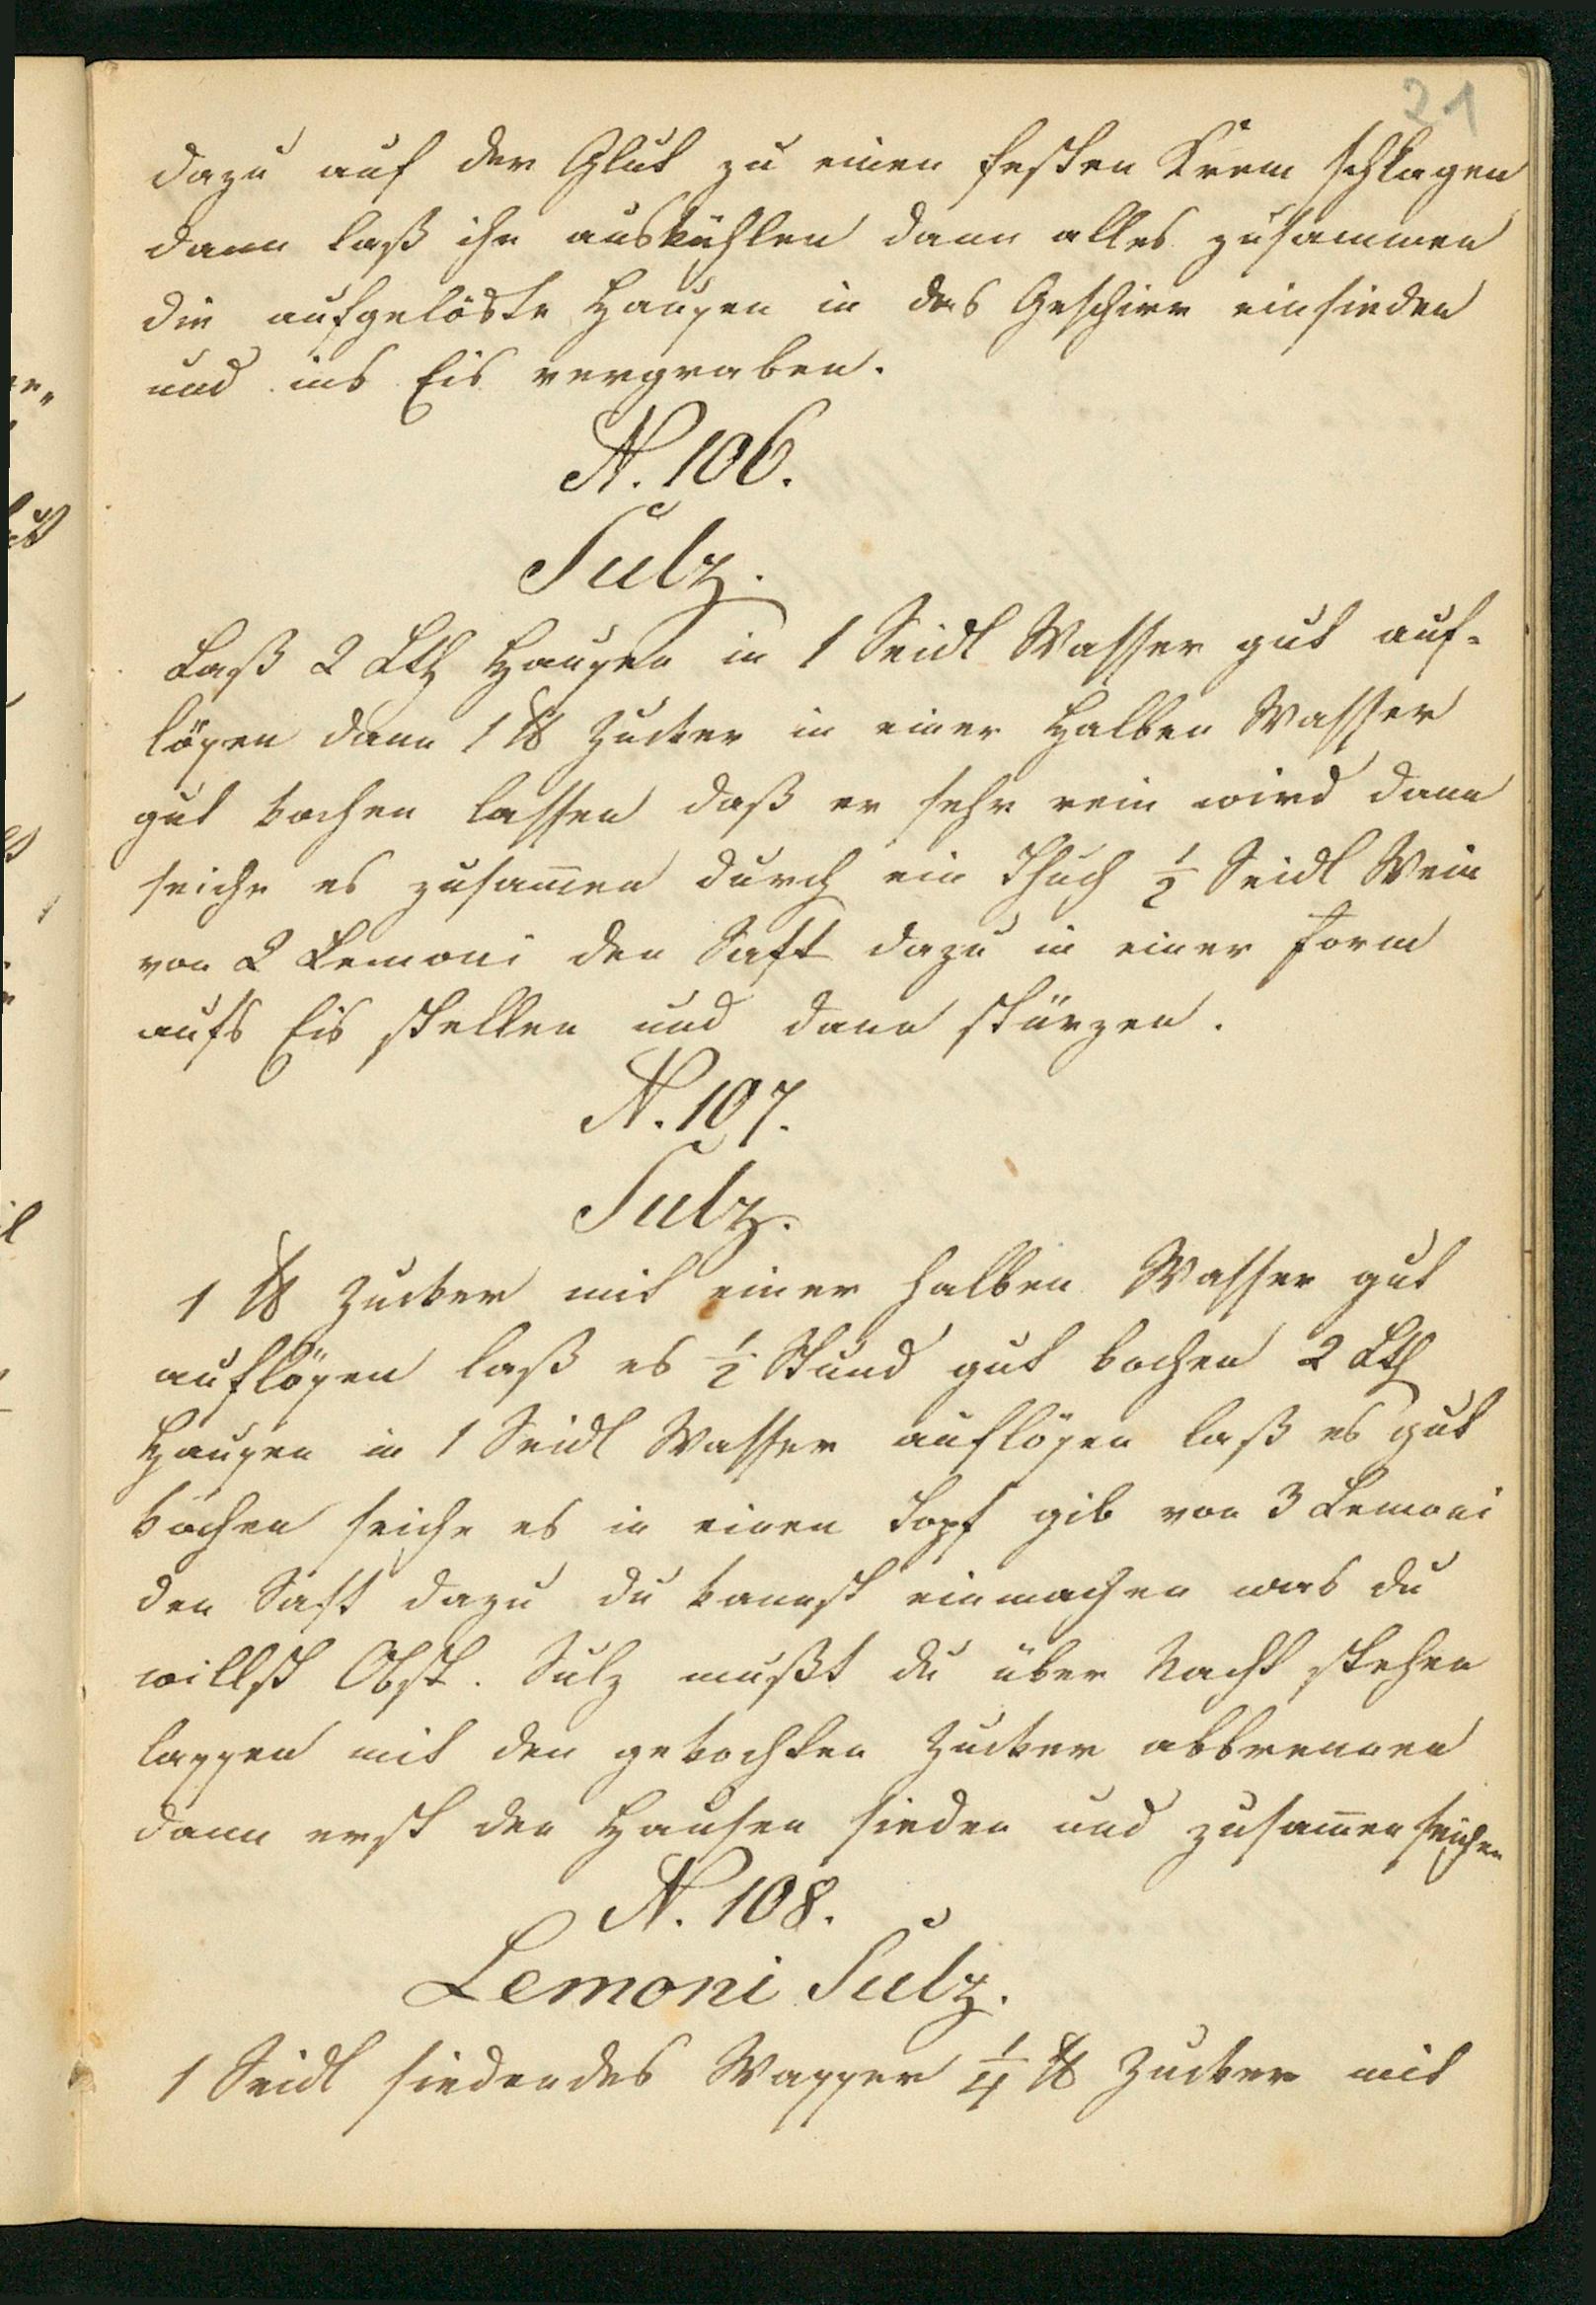 21
dazu auf der Glut zu einen festen Krem schlagen
dann laß ihn auskühlen dann alles zusammen
die aufgelöste Hausen in das Geschirr einsieden
und ins Eis vergraben.
N. 106.
Sulz.
Laß 2 Lth Hausen in 1 Seidl Wasser gut auf-
lösen dann 1 ℔ Zucker in einer Halben Wasser
gut kochen lassen daß er sehr rein wird dann
seihe es zusam̅en durch ein Thuch ½ Seidl Wein
von 2 Lemoni den Saft dazu in einer Form
aufs Eis stellen und dann stürzen.
N. 107.
Sulz.
1 ℔ Zucker mit einer halben Wasser gut
auflösen laß es ½ Stund gut kochen 2 Lth
Hausen in 1 Seidl Wasser auflösen laß es gut
kochen seihe es in einen Topf gib von 3 Lemoni
den Saft dazu du kannst einmachen was du
willst Obst. Sulz mußt du über Nacht stehen
lassen mit den gekochten Zucker abbrennen
dann erst den Hausen sieden und zusam̅en seihen
N. 108.
Lemoni Sulz.
1 Seidl siedendes Wasser ¼ ℔ Zucker mit